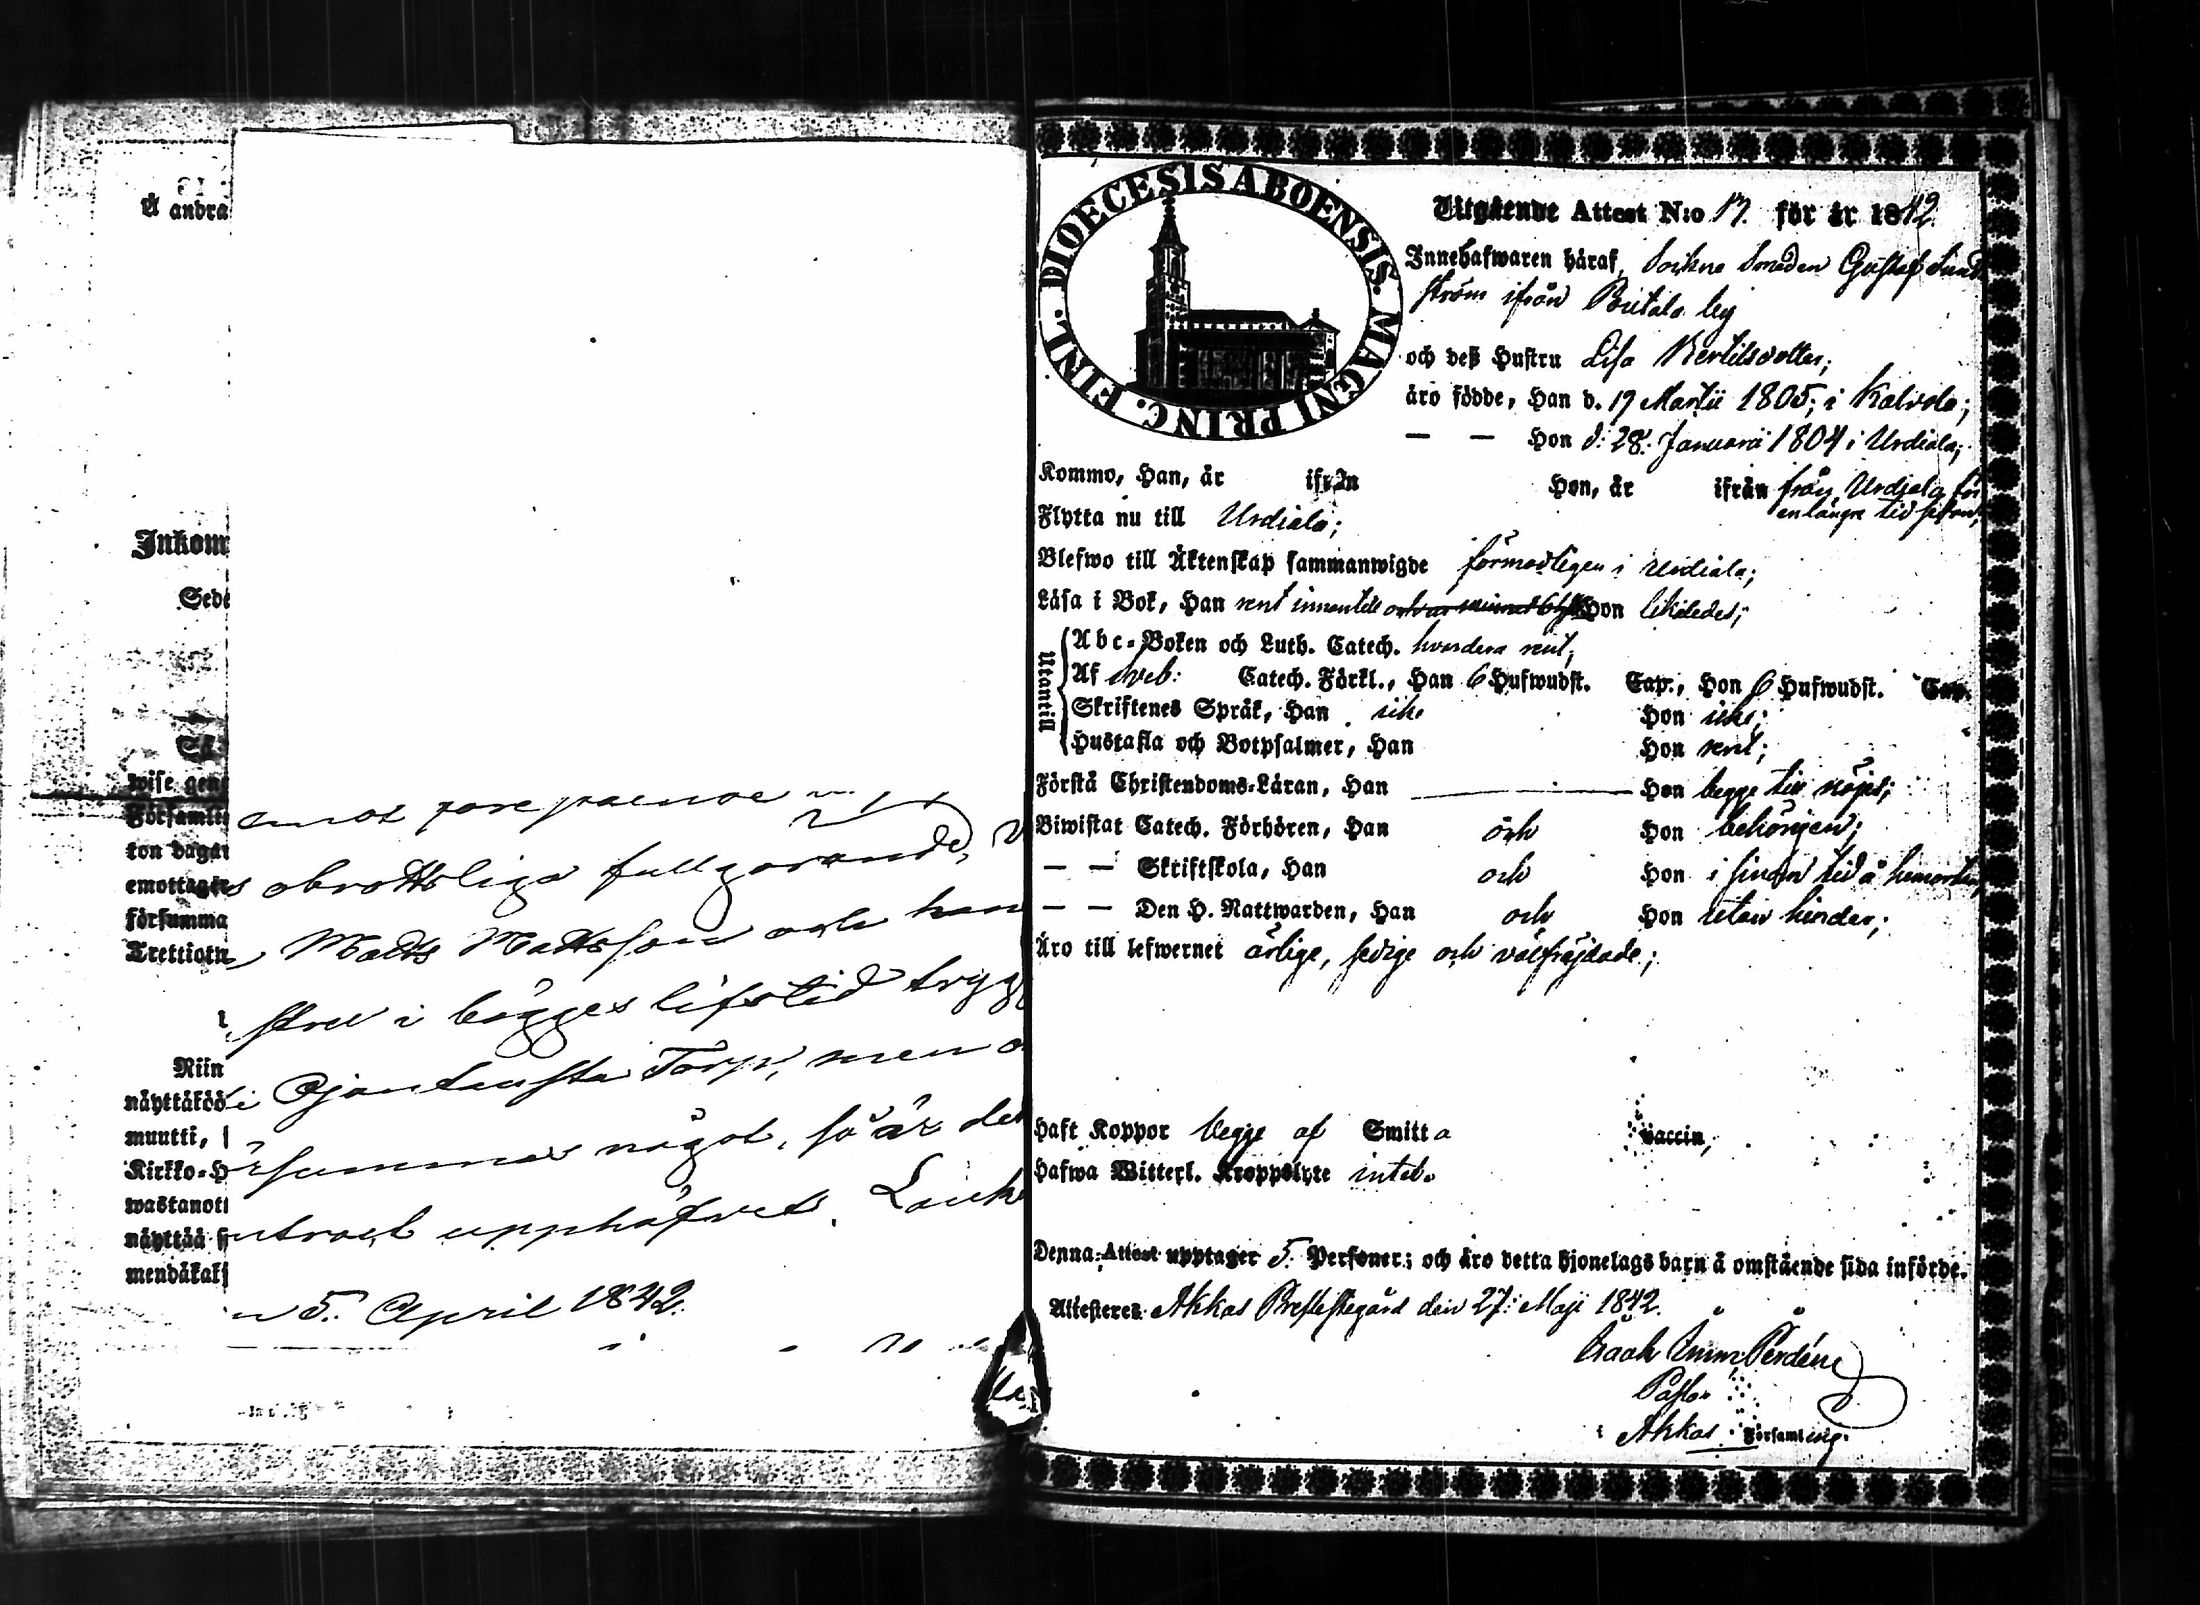 Å andra
Inkom
Sede
wise gen
Församli
ton dagar
emottager
försumma
Trettiotu
Niin
näyttäköö
muutti,
Kirkko-H
wastanoti
näyttää
mendäkaks
emot
s obrottsliga fullgorande,
Matts Mattsson och han
stru i bägges lifstid trygg
i Ojantausta Torp, men
summas något, så är de
ntract upphäfvet.
5. April 1842.
DIOECESIS ABOENSIS. MAGNI PRINC. FINL.
Utgående Attest N:o 17. för år 1842.
Innehafwaren häraf, Sockne Smeden Gustaf Sund
ström ifrån by
och deß Hustru Lisa Bertilsdotter;
äro födde, Han d. 19 Martii 1805; i Kalvola;
— — Hon d: 28: Januarii 1804 i Urdiala;
Kommo, Han, år ifrån Hon, år ifrån från Urdiala för
en längre tid sedan;
Flytta nu till Urdiala;
Blefwo till Äktenskap sammanwigde förmodligen i Urdiala;
Läsa i Bok, Han rent innantill Hon likaledes;
Utantill
Abc-Boken och Luth. Catech. hvardera rent;
Af Sveb: Catech. Förkl., Han 6 Hufwudst. Cap., Hon 6 Hufwudst. Cap.
Skriftenes Språk, Han icke Hon icke;
Hustafla och Botpsalmer, Han Hon rent;
Förstå Christendoms-Läran, Han — Hon begge till nöjes;
Biwistat Catech. Förhören, Han och Hon behörigen;
— — Skriftskola, Han och Hon i sinom tid å hemorten,
— — Den H. Nattwarden, Han och Hon utan hinder;
Äro till lefwernet ärlige, sedige och välfräjdade;
Haft Koppor begge af Smitta vaccin,
Hafwa Witterl. Kroppslyte intet.
Denna Attest upptager 5. Personer; och äro detta hjonelags barn å omstående sida införde.
Attesteres Akkas Prestegård den 27: Maji 1842.
Isaak Imm. Perdén
Pastor
i Akkas Församling.